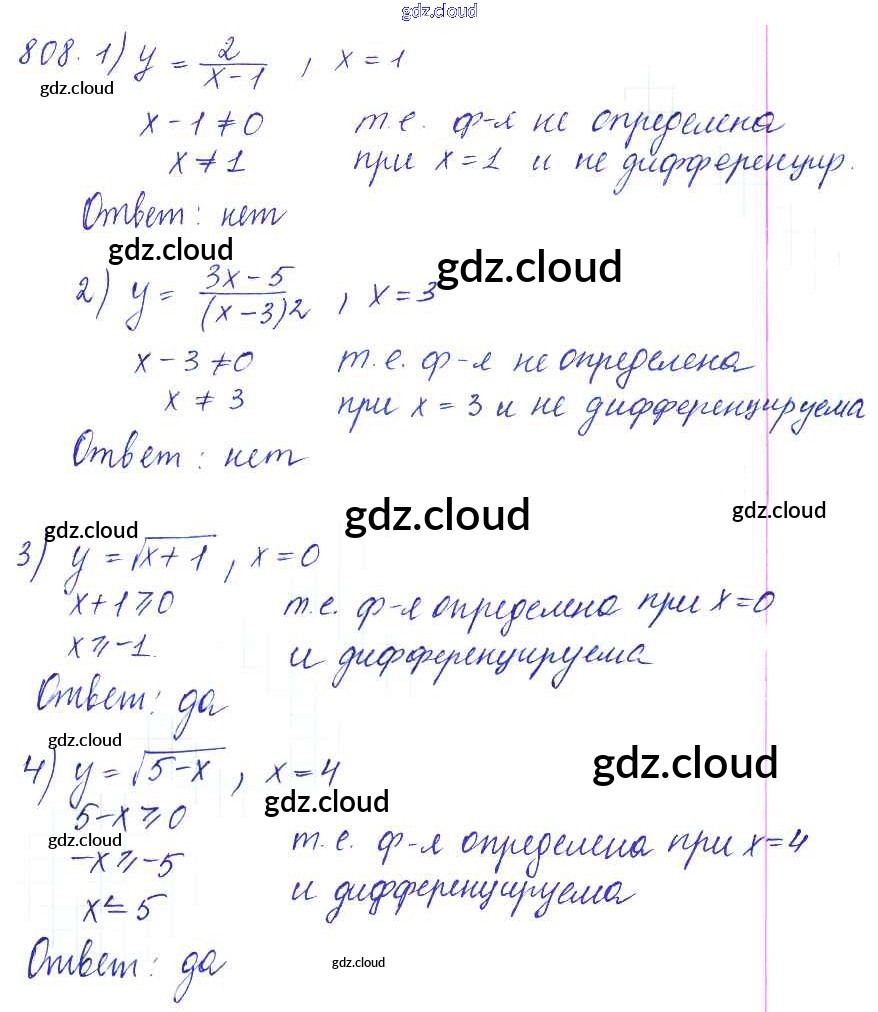 gdz.cloud
808. 1) y = 2/(x-1) , x = 1
gdz.cloud
x - 1 ≠ 0 т.е. ф-я не определена
x ≠ 1 при x = 1 и не дифференцир.
Ответ: нет
gdz.cloud
gdz.cloud
2) y = (3x-5)/(x-3)2 , x = 3
x - 3 ≠ 0 т.е. ф-я не определена
x ≠ 3 при x = 3 и не дифференцируема
Ответ: нет
gdz.cloud
gdz.cloud
gdz.cloud
3) y = √(x+1) , x = 0
x + 1 ⩾ 0 т.е. ф-я определена при x = 0
x ⩾ -1. и дифференцируема
Ответ: да
gdz.cloud
gdz.cloud
4) y = √(5-x) , x = 4
gdz.cloud
5 - x ⩾ 0
gdz.cloud т.е. ф-я определена при x = 4
-x ⩾ -5
x ⩽ 5 и дифференцируема
Ответ: да
gdz.cloud